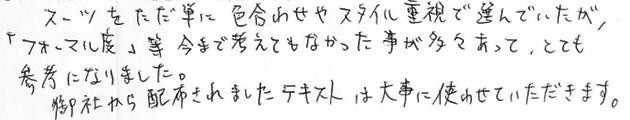 スーツをただ単に色合わせやスタイル重視で選んでいたが、
「フォーマル度」等今まで考えてもなかった事が多々あって、とても
参考になりました。
御社から配布されましたテキストは大事に使わせていただきます。